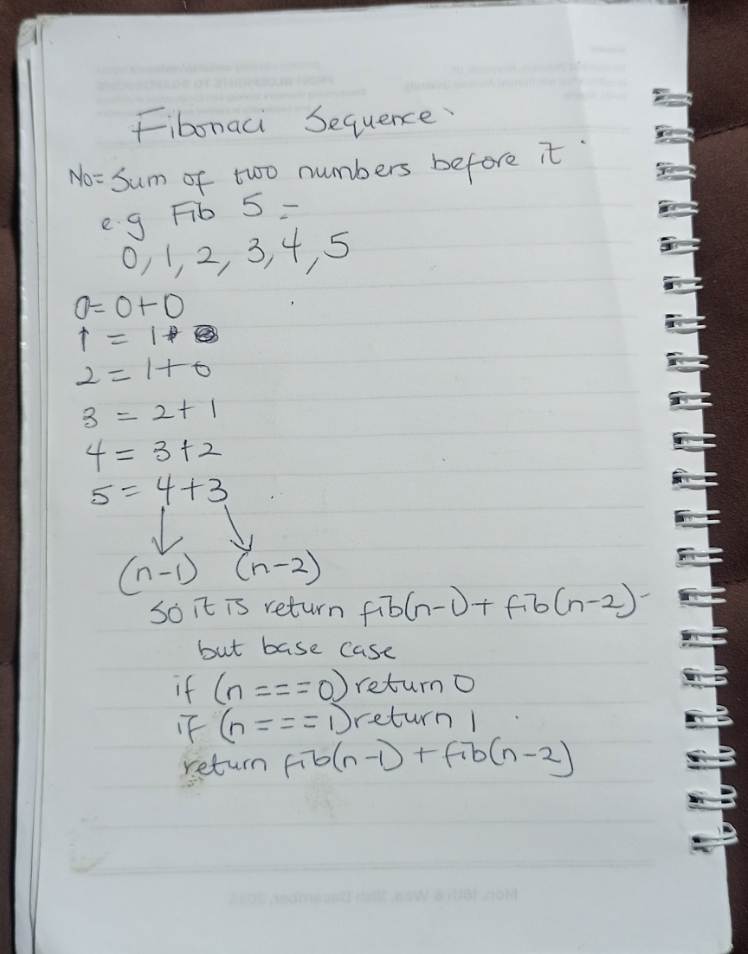 Fibonaci Sequence.
No = Sum of two numbers before it.
e.g Fib 5 =
0, 1, 2, 3, 4, 5
0 = 0 + 0
1 = 1 +
2 = 1 + 0
3 = 2 + 1
4 = 3 + 2
5 = 4 + 3
(n-1) (n-2)
So it is return fib(n-1) + fib(n-2)
but base case
if (n === 0) return 0
if (n === 1) return 1
return fib(n-1) + fib(n-2)